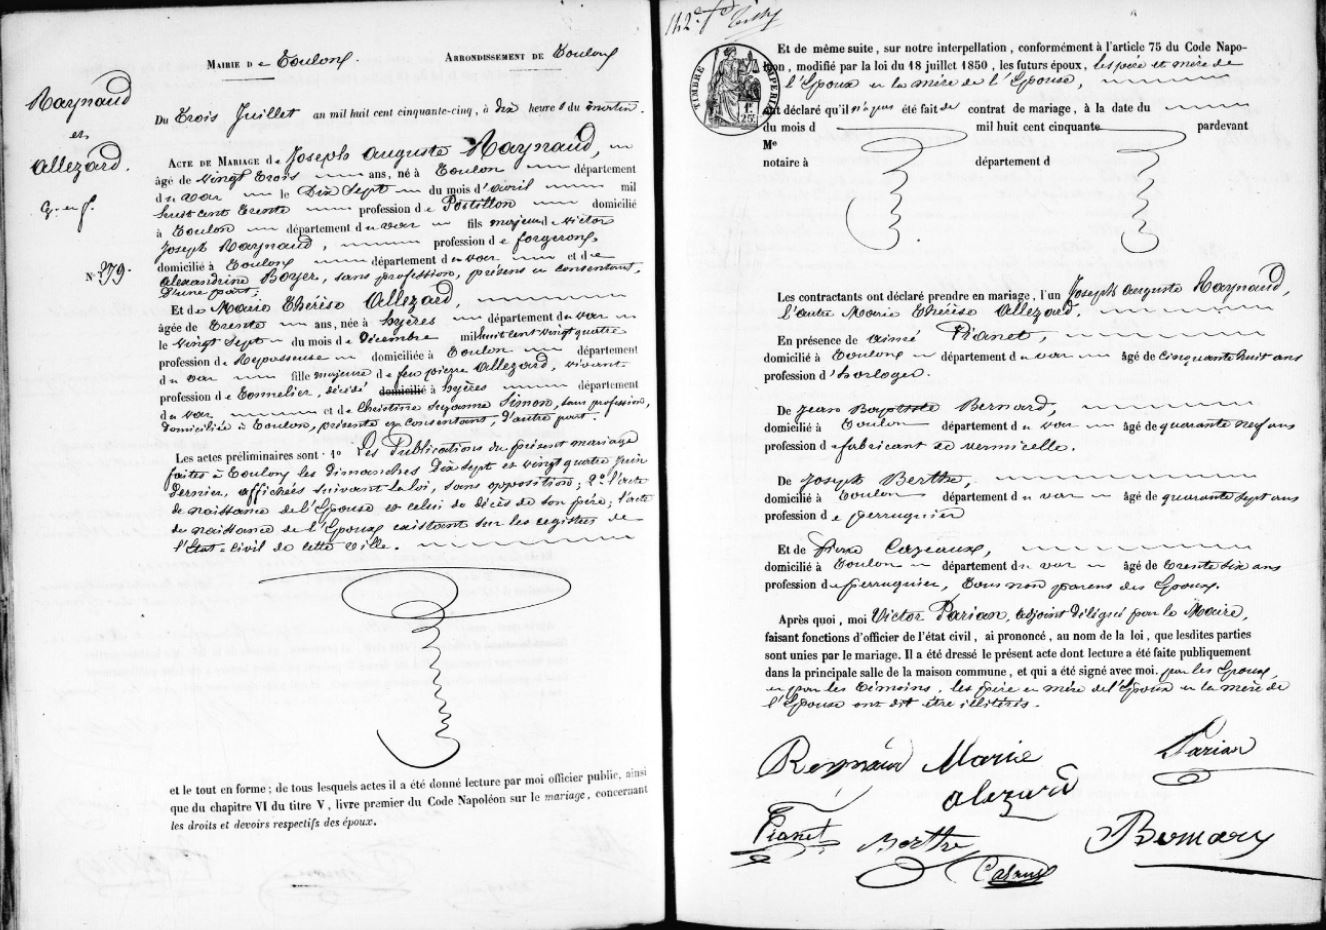 Mairie de Toulon. Arrondissement de Toulon
Raynaud
et
Allezard.
G. en f.
N° 379.
Du Trois Juillet an mil huit cent cinquante-cinq, à dix heures du matin.
Acte de Mariage de Joseph Auguste Raynaud,
âgé de Vingt Trois ans, né à Toulon département
du var le Dix Sept du mois d'avril mil
huit cent Trente profession de Postillon domicilié
à Toulon département du var fils majeur de Victor
Joseph Raynaud, profession de forgeron,
domicilié à Toulon département du var et de
Alexandrine Boyer, sans profession, présens et consentant,
d'une part;
Et de Marie Thérèse Allezard,
âgée de Trente ans, née à hyères département du var
le Vingt Sept du mois de Décembre mil huit cent vingt quatre
profession de Repasseuse domiciliée à Toulon département
du var fille majeure de feu pierre Allezard, vivant
profession de Tonnelier, décédé domicilié à hyères département
du var et de Christine Suzanne Simon, sans profession,
domiciliée à Toulon, présente et consentant, d'autre part.
Les actes préliminaires sont 1° Les Publications du présent mariage
faites à Toulon les dimanches Dix sept et vingt quatre Juin
dernier, affichées suivant la loi, sans opposition; 2° l'acte
de naissance de l'Epouse et celui de décès de son père; l'acte
de naissance de l'Epoux existant sur les registres de
l'Etat-civil de cette ville.
et le tout en forme ; de tous lesquels actes il a été donné lecture par moi officier public, ainsi
que du chapitre VI du titre V, livre premier du Code Napoléon sur le mariage, concernant
les droits et devoirs respectifs des époux.
142e f°
TIMBRE IMPERIAL
1 f. 25 c.
Et de même suite, sur notre interpellation, conformément à l'article 75 du Code Napo-
léon, modifié par la loi du 18 juillet 1850, les futurs époux, les père et mère de
l'Epoux et la mère de l'Epouse,
ont déclaré qu'il n'a pas été fait de contrat de mariage, à la date du
du mois d mil huit cent cinquante pardevant
Me
notaire à département d
Les contractants ont déclaré prendre en mariage, l'un Joseph Auguste Raynaud,
l'autre Marie Thérèse Allezard.
En présence de aimé Pianet,
domicilié à Toulon département du var âgé de Cinquante huit ans
profession d'horloger.
De Jean Baptiste Bernard,
domicilié à Toulon département du var âgé de quarante neuf ans
profession de fabricant de vermicelle.
De Joseph Berthe,
domicilié à Toulon département du var âgé de quarante sept ans
profession de perruquier
Et de Pierre Cazeaux,
domicilié à Toulon département du var âgé de Trente six ans
profession de perruquier, Tous non parens des Epoux.
Après quoi, moi Victor Parian, adjoint délégué par le Maire,
faisant fonctions d'officier de l'état civil, ai prononcé, au nom de la loi, que lesdites parties
sont unies par le mariage. Il a été dressé le présent acte dont lecture a été faite publiquement
dans la principale salle de la maison commune, et qui a été signé avec moi par les Epoux,
et par les Témoins, les père et mère de l'Epoux et la mère de
l'Epouse ont dit être illitérés.
Reynaud Marie Parian
alezard
Pianet Berthe Bernard